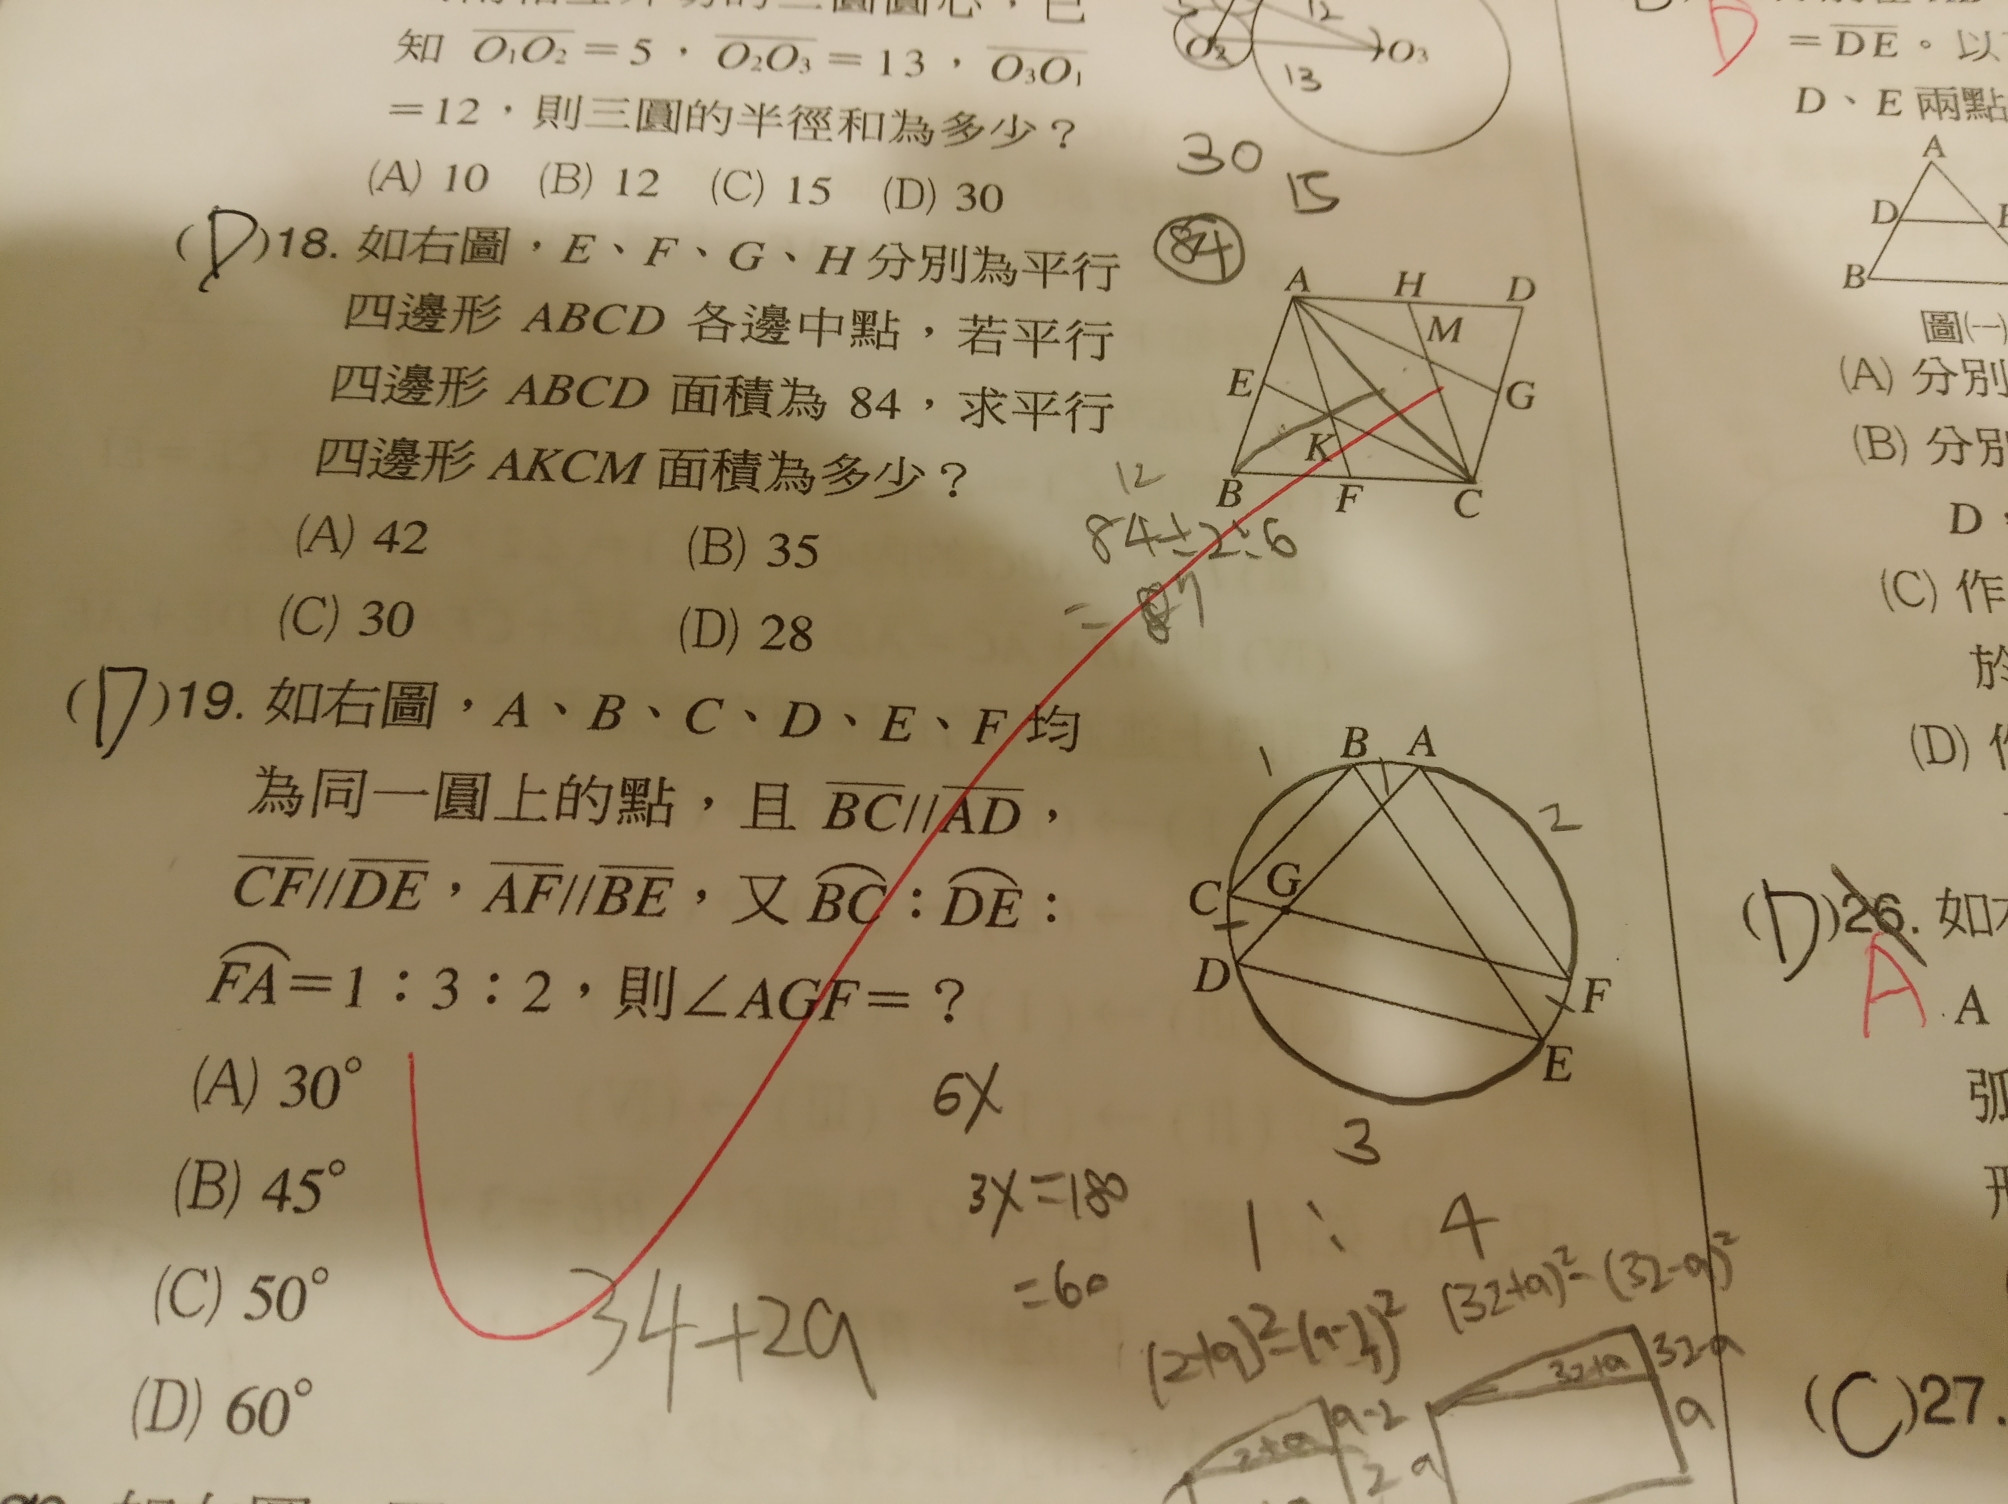 知 O₁O₂=5，O₂O₃=13，O₃O₁
=12，則三圓的半徑和為多少？
(A) 10 (B) 12 (C) 15 (D) 30
O₂ 12 O₃
13
30
15
(D)18. 如右圖，E、F、G、H 分別為平行
四邊形 ABCD 各邊中點，若平行
四邊形 ABCD 面積為 84，求平行
四邊形 AKCM 面積為多少？
(A) 42 (B) 35
(C) 30 (D) 28
84
A H D
M
E G
K
B F C
12
84÷2÷6
(D)19. 如右圖，A、B、C、D、E、F 均
為同一圓上的點，且 BC//AD，
CF//DE，AF//BE，又 BC：DE：
FA=1：3：2，則∠AGF=？
(A) 30°
(B) 45°
(C) 50°
(D) 60°
B A
1 1 2
C G
D F
E
3
6X
3X=180
=60
1 : 4
34+2a
(32+a)²-(32-a)²
32+a 32-a
a a
a-2
2
B
=DE。以
D、E 兩點
A
D
B
圖(一)
(A) 分別
(B) 分別
D
(C) 作
於
(D)
(D)26. 如
A
A
弧
(C)27.